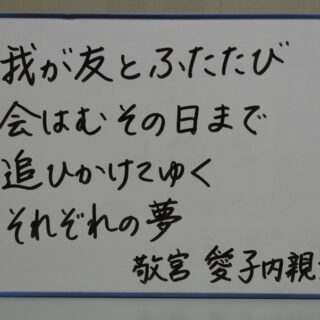 我が友とふたたび
会はむその日まで
追ひかけてゆく
それぞれの夢
敬宮 愛子内親